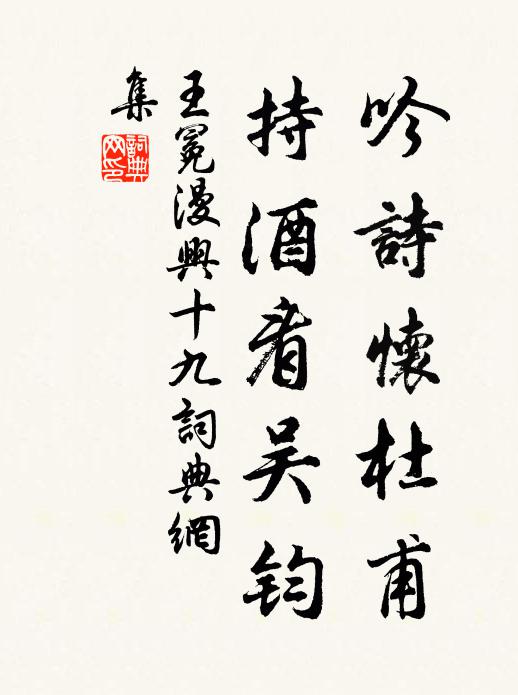 吟詩懷杜甫
持酒看吴鈞
王冕漫興十九詞典網
集
詞典网印